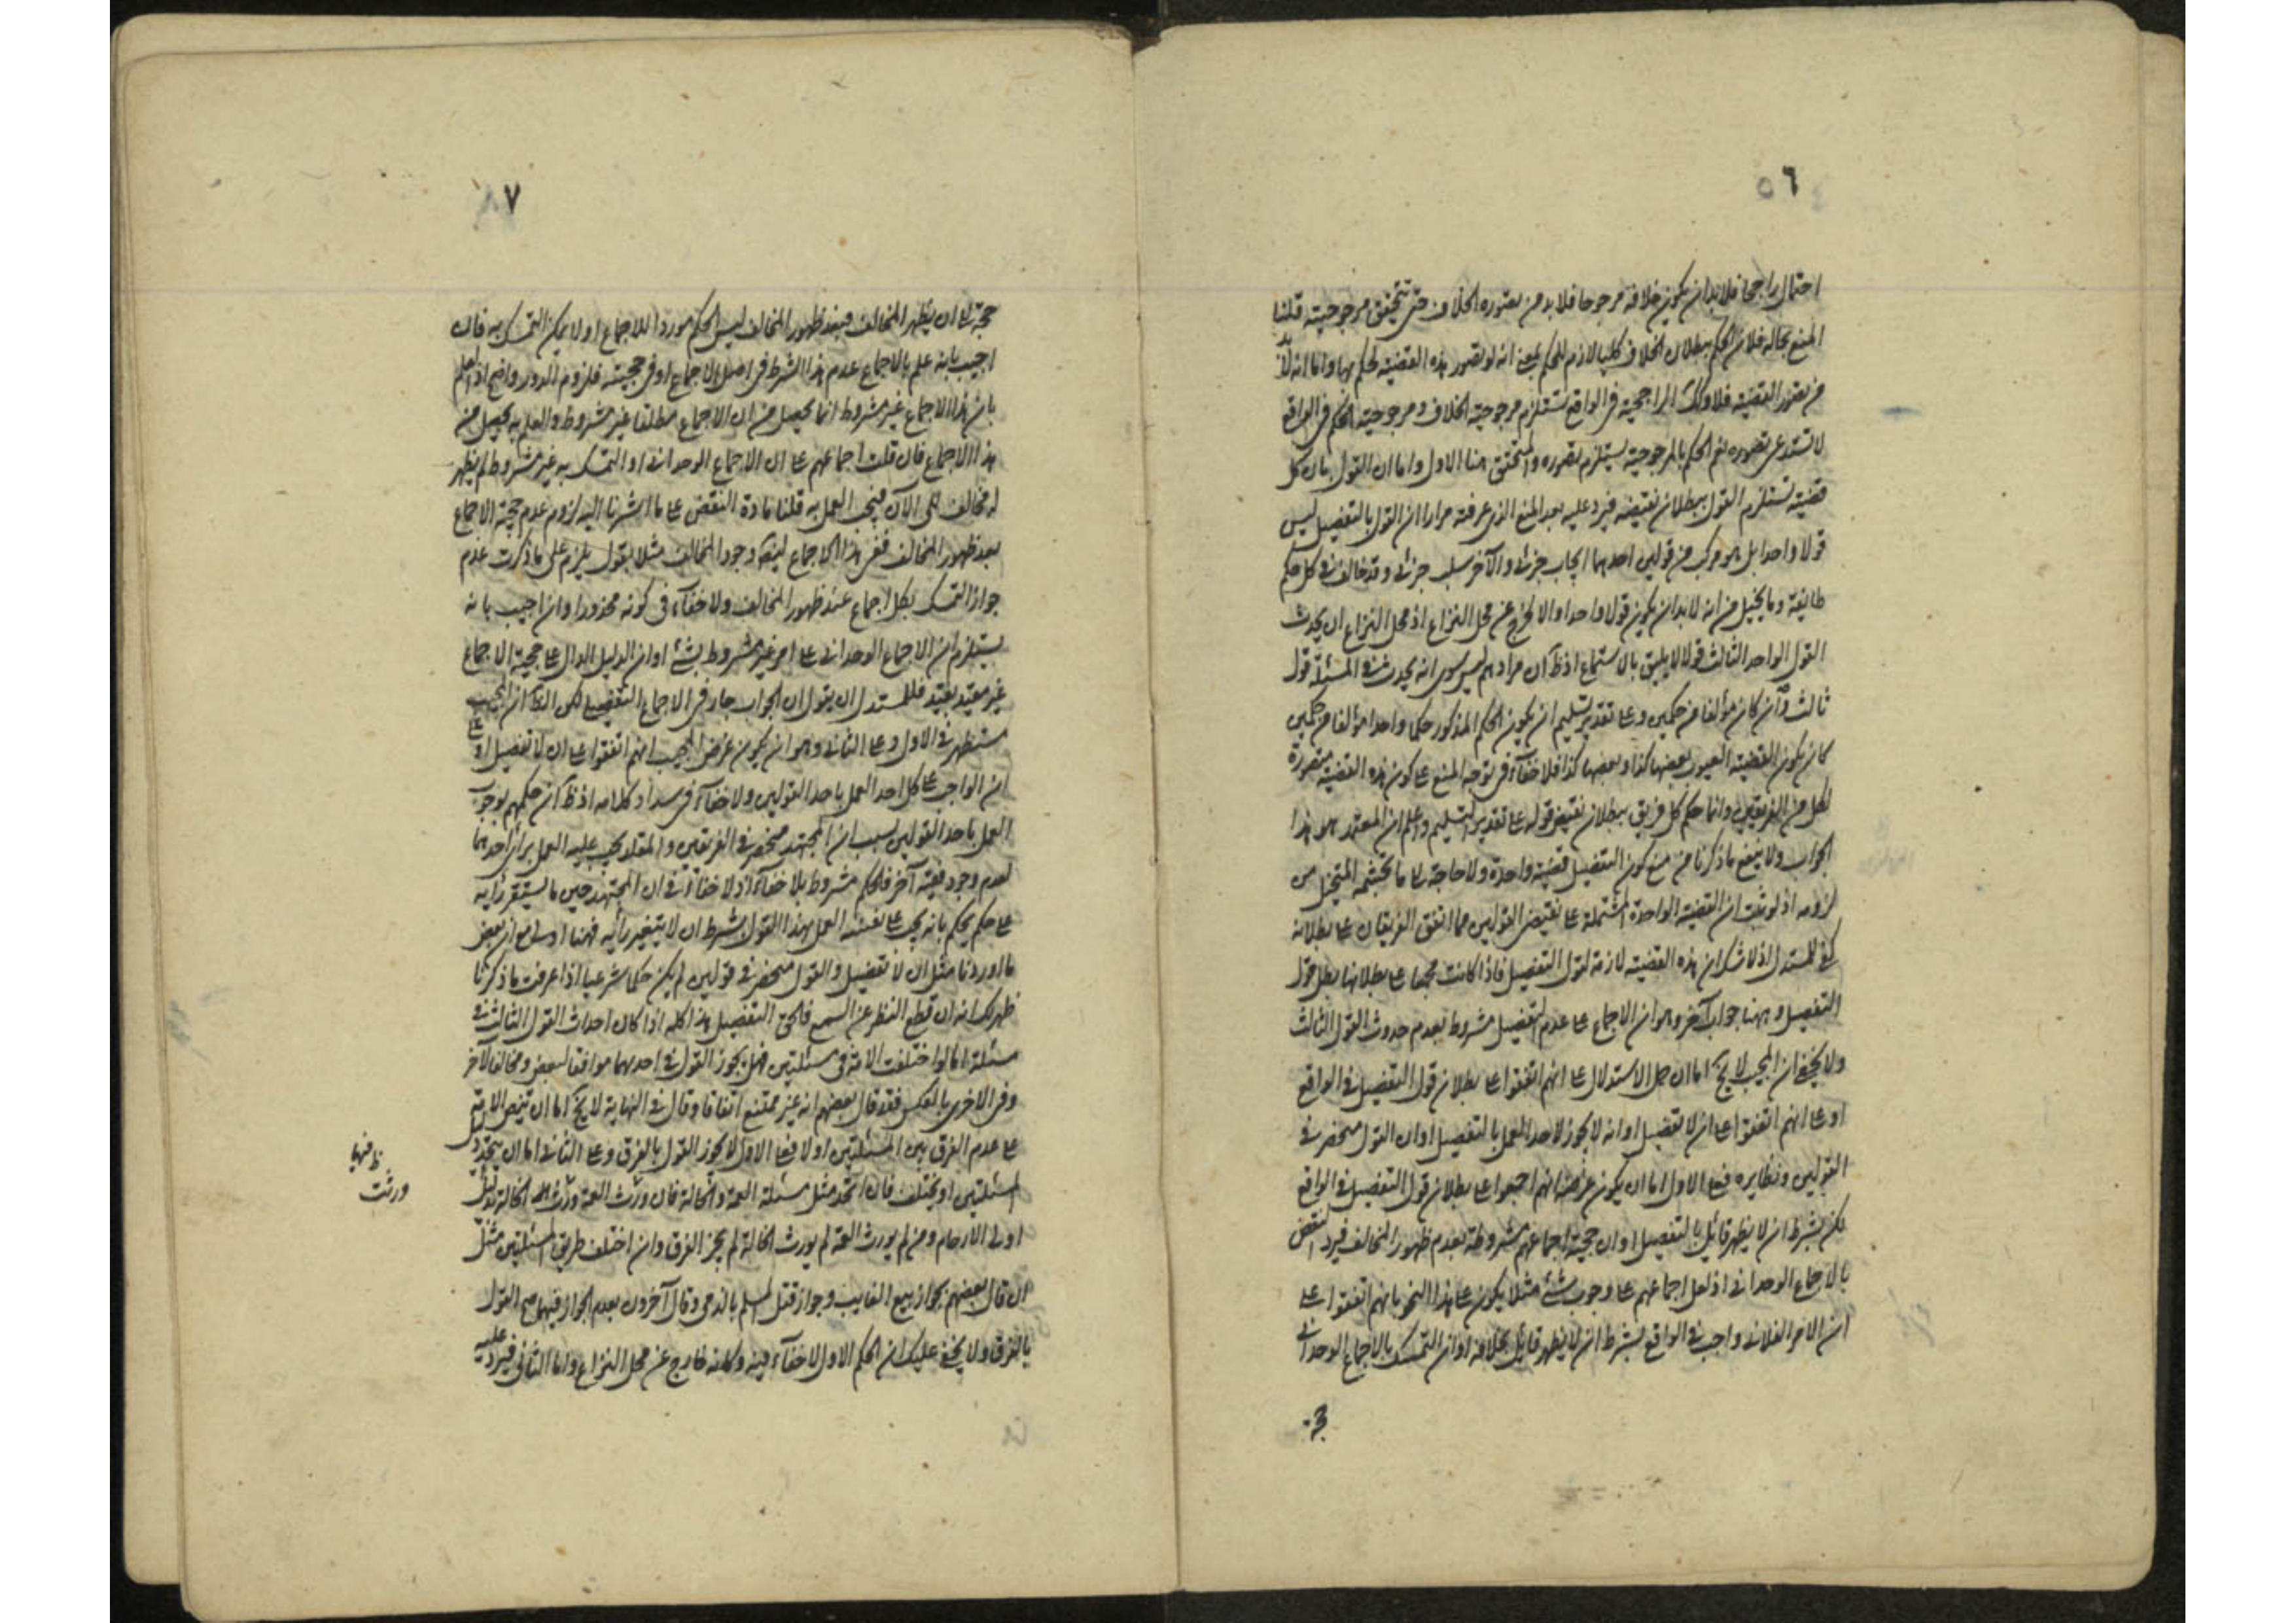 ٥٦
احتمال راجحا فلا بد ان يكون خلافه مرجوحا فلا بد من تصوره الخلاف حتى تتحقق مرجوحيته قلنا
المنع بحاله فلان الحكم ببطلان الخلاف كليا لازم للحكم بمعنى انه لو تصور هذه القضية لحكم بها واما انه لا بد
من تصور القضية فلا وكك الراجحية في الواقع تستلزم مرجوحية الخلاف ومرجوحية الحكم في الواقع
لا تستدعى تصوره نعم الحكم بالمرجوحية يستلزم تصوره والمتحقق هنا الاول واما ان القول بان كل
قضية تستلزم القول ببطلان نقيضه فيرد عليه بعد المنع الذى عرفته مرارا ان القول بالتفصيل ليس
قولا واحدا بل هو مركب من قولين احدهما ايجاب جزئى والآخر سلب جزئى وقد خالف فى كل حكم
طائفة وما يتخيل من انه لا بد ان يكون قولا واحدا والا لخرج عن محل النزاع اذ محل النزاع ان يحدث
القول الواحد الثالث قولا لا يليق بالاستماع اذ ظ ان مرادهم ليس سوى انه يحدث فى المسئلة قول
ثالث وان كان مؤلفا من حكمين وعلى تقدير تسليم ان يكون الحكم المذكور حكما واحدا مؤلفا من حكمين
كان يكون القضية العيوب بعضها كذا وبعضها كذا فلا خفاء فى توجه المنع على كون هذه القضية متصورة
لكل من الفريقين وانما حكم كل فريق ببطلان نقيض قوله على تقدير التسليم واعلم ان المعتمد هو هذا
الجواب ولا ينفع ما ذكرنا من منع كون التفصيل قضية واحدة ولا حاجة الى ما تجشمه المتخيل من
لزومه اذ لو ثبت ان القضية الواحدة المشتملة على نقيض القولين مما اتفق الفريقان على بطلانه
كفى للمستدل اذ لا شك ان هذه القضية لازمة لقول التفصيل فاذا كانت مجمعا على بطلانها بطل قول
التفصيل وههنا جواب آخر وهو ان الاجماع على عدم التفصيل مشروط بعدم حدوث القول الثالث
ولا يخفى ان المجيب لا يخ اما ان حمل الاستدلال على انهم اتفقوا على بطلان قول التفصيل فى الواقع
او على انهم اتفقوا على ان لا تفصيل او انه لا يجوز لاحد العمل بالتفصيل او ان القول منحصر فى
القولين ونظايره فعلى الاول اما ان يكون غرضه انهم اجمعوا على بطلان قول التفصيل فى الواقع
لكن بشرط ان لا يظهر قائل بالتفصيل او ان حجية اجماعهم مشروطة بعدم ظهور المخالف فيرد النقض
بالاجماع الوحدانى اذ لعل اجماعهم على وجوب شئ مثلا يكون على هذا النحو بانهم اتفقوا على
ان الامر الفلانى واجب فى الواقع بشرط ان لا يظهر قائل بخلافه او ان التمسك بالاجماع الوحدانى
٧
حجة الى ان يظهر المخالف فبعد ظهور المخالف ليس الحكم موردا للاجماع او لا يمكن التمسك به فان
اجيب بانه علم بالاجماع عدم هذا الشرط فى اصل الاجماع او فى حجيته فلزوم الدور واضح اذ العلم
بان هذا الاجماع غير مشروط انما يحصل من ان الاجماع مطلقا غير مشروط والعلم به يحصل من
هذا الاجماع فان قلت اجماعهم على ان الاجماع الوحدانى او التمسك به غير مشروط لم يظهر
له مخالف الى الآن فيجب العمل به قلنا مادة النقض على ما اشرنا اليه لزوم عدم حجية الاجماع
بعد ظهور المخالف ففى هذا الاجماع وجود المخالف مثلا يقول يلزم على ما ذكرت عدم
جواز التمسك بكل اجماع عند ظهور المخالف ولا خفاء فى كونه محذورا وان اجيب بانه
يستلزم ان الاجماع الوحدانى على امر غير مشروط بشئ او ان الدليل الدال على حجية الاجماع
غير مقيد بقيد فللمستدل ان يقول ان الجواب جار فى الاجماع التفصيلى لكن الظ ان المجيب
مستظهر فى الاول وعلى الثانى وهو ان يكون غرض المجيب انهم اتفقوا على ان لا تفصيل او على
ان الواجب على كل احد العمل باحد القولين ولا خفاء فى سداد كلامه اذ ظ ان حكمهم بوجوب
العمل باحد القولين بسبب ان المجتهد منحصر فى الفريقين والمقلد يجب عليه العمل براى احدهما
لعدم وجود فقيه آخر فالحكم مشروط بلا خفاء اذ لا خفاء فى ان المجتهد حين ما يستقر رأيه
على حكم يحكم بانه يجب على نفسه العمل بهذا القول بشرط ان لا يتغير رأيه فهنا اولى مع ان بعض
ما اوردنا مثل ان لا تفصيل والقول منحصر فى قولين لم يكن حكما شرعيا اذا عرفت ما ذكرنا
ظهر لك انه ان قطع النظر عن السمع فالحق التفصيل هذا كله اذا كان احداث القول الثالث فى
مسئلة اما لو اختلفت الامة فى مسئلتين فهل يجوز القول فى احدهما موافقا لبعض ومخالفا لآخر
وفى الاخرى بالعكس فقد قال بعضهم انه غير ممتنع اتفاقا وقال فى النهاية لا يخ اما ان تنص الامة
على عدم الفرق بين المسئلتين او لا فعلى الاول لا يجوز القول بالفرق وعلى الثانى اما ان يتحد
المسئلتين او يختلف فان اتحد مثل مسئلة العمة والخالة فان من ورث العمة ورث الخالة
اولى الارحام ومن لم يورث العمة لم يورث الخالة لم يجز الفرق وان اختلف طريق المسئلتين مثل
ان قال بعضهم بجواز بيع الغايب وجواز قتل المسلم بالذمى وقال آخرون بعدم الجواز فيهما صح القول
بالفرق ولا يخفى عليك ان الحكم الاول لا خفاء فيه وكانه خارج عن محل النزاع واما الثانى فيرد عليه
ورثت